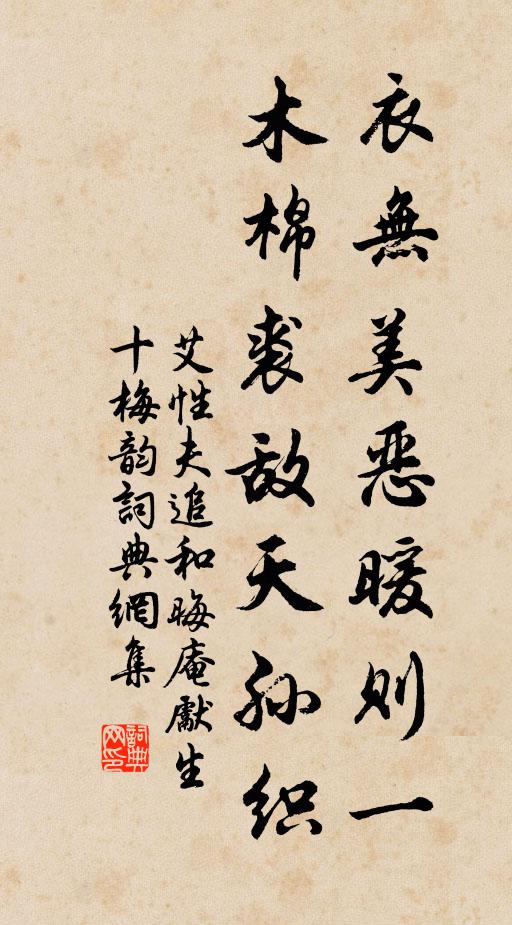 衣無美恶暖则一
木棉裘敌天孙织
艾性夫追和晦庵獻生
十梅韵詞典網集
詞典网印